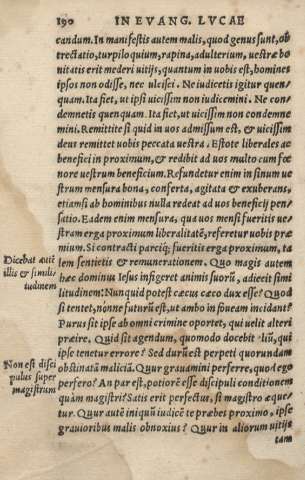 190 IN EVANG. LVCAE
candum. In manifestis autem malis, quod genus sunt, ob
trectatio, turpiloquium, rapina, adulterium, uestræ bo
nitatis erit mederi uitijs, quantum in uobis est, homines
ipsos non odisse, nec ulcisci. Ne iudicetis igitur quen-
quam. Ita fiet, ut ipsi uicissim non iudicemini. Ne con-
demnetis quenquam. Ita fiet, ut uicissim non condemne
mini. Remittite si quid in uos admissum est, & uicissim
deus remittet uobis peccata uestra. Estote liberales ac
benefici in proximum, & redibit ad uos multo cum fœ
nore uestrum beneficium. Refundetur enim in sinum ue
strum mensura bona, conferta, agitata & exuberans,
etiamsi ab hominibus nulla redeat ad uos beneficij pen
satio. Eadem enim mensura, qua uos mensi fueritis ue
stram erga proximum liberalitatē, referetur uobis præ
mium. Si contracti parciq; fueritis erga proximum, ta
lem sentietis & remunerationem. Quo magis autem
Dicebat autē
illis & simili
tudinem
hæc dominus Iesus infigeret animis suorū, adiecit simi
litudinem: Nunquid potest cæcus cæco dux esse? Quod
si tentet, nōnne futurū est, ut ambo in foueam incidant?
Purus sit ipse ab omni crimine oportet, qui uelit alteri
præire. Quid sit agendum, quomodo docebit aliū, qui
ipse tenetur errore? Sed durū est perpeti quorundam
obstinatā maliciā. Quur grauamini perferre, quod ego
Non est disci
pulus super
magistrum
perfero? An par est, potiorē esse discipuli conditionem
quàm magistri? Satis erit perfectus, si magistro æque-
tur. Quur autē iniquū iudicē te præbes proximo, ipse
grauioribus malis obnoxius? Quur in aliorum uitijs
tam